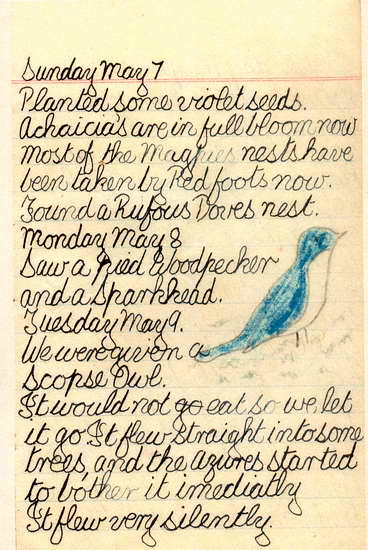 Sunday May 7
Planted some violet seeds.
Achaicia's are in full bloom now
Most of the Magpies nests have
been taken by Red foots now.
Found a Rufous Doves nest.
Monday May 8
Saw a Pied Woodpecker
and a Sparkhead.
Tuesday May 9.
We were given a
Scopse Owl.
It would not go eat so we let
it go It flew straight into some
trees, and the azures started
to bother it imediatly
It flew very silently.